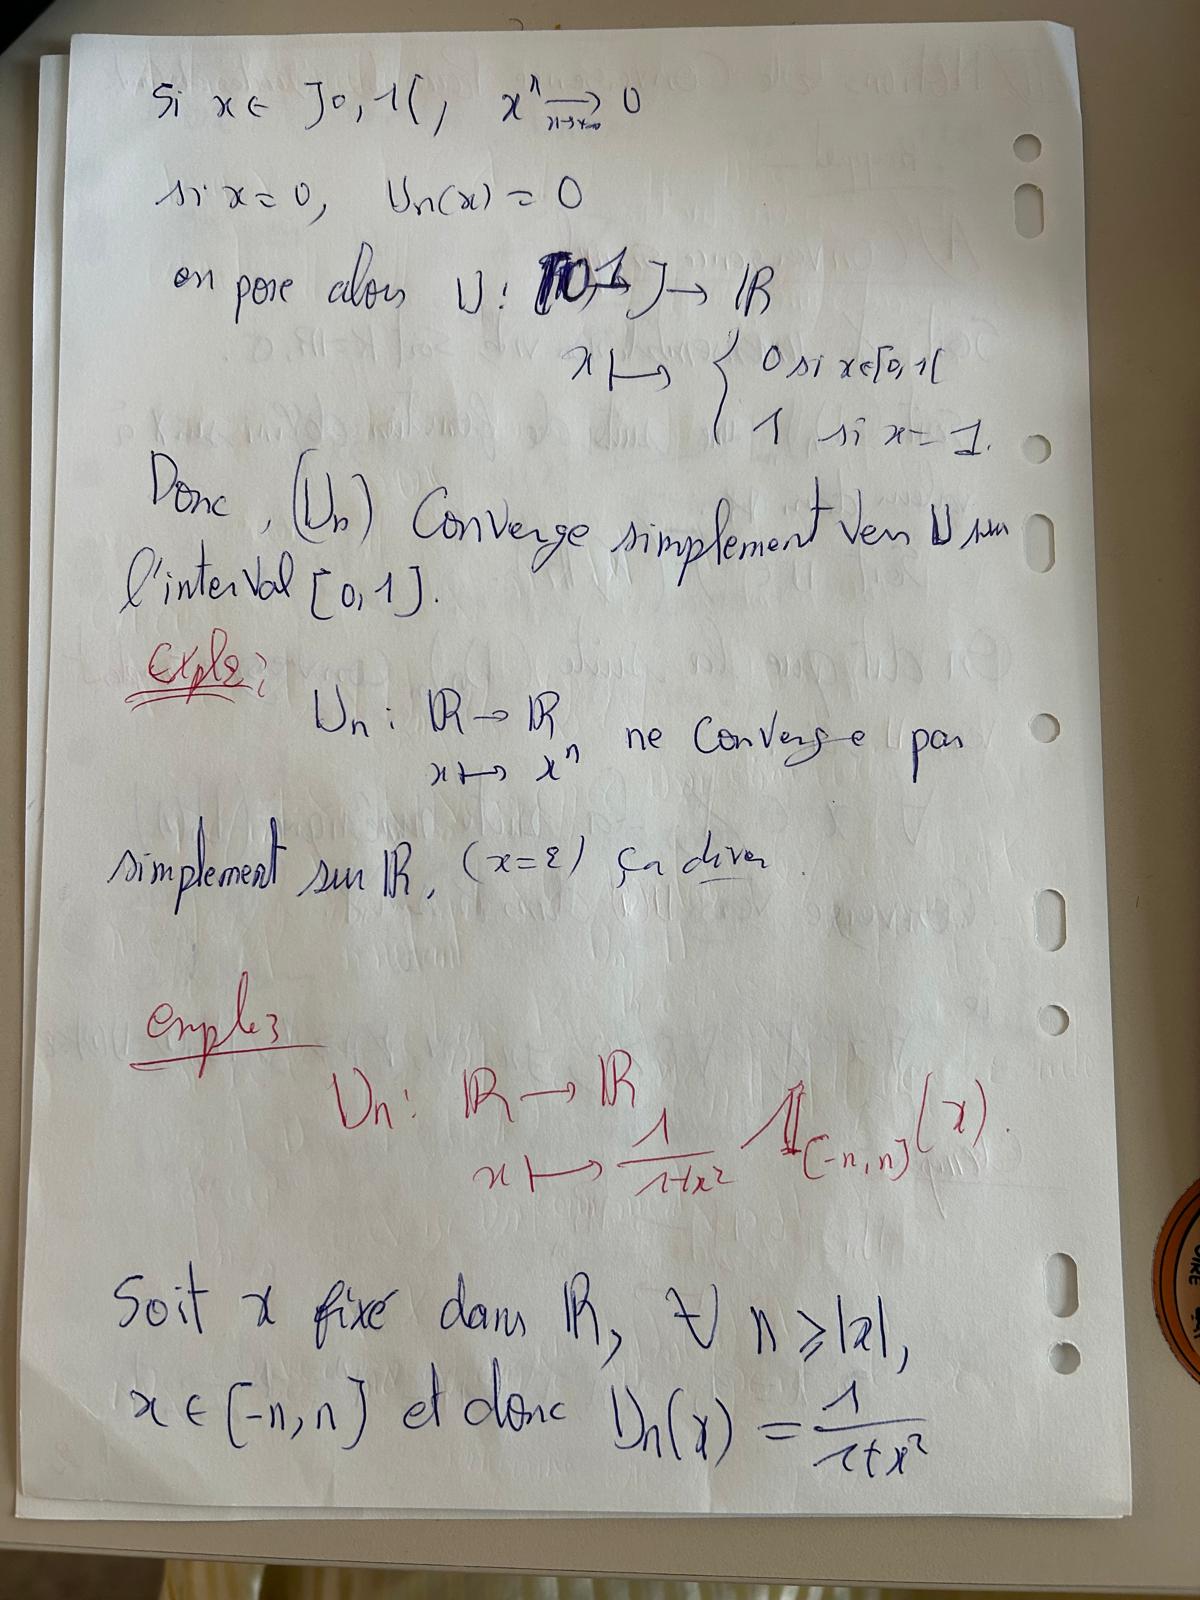 Si x ∈ ]0,1[, xⁿ ⟶ 0
n→+∞
si x = 0, Un(x) = 0
on pose alors U : [0,1] → ℝ
x ↦ { 0 si x∈[0,1[
1 si x = 1.
Donc, (Un) Converge simplement vers U sur
l'interval [0,1].
Exple2
Un : ℝ → ℝ
x ↦ xⁿ ne Converge pas
simplement sur ℝ, (x=2) ça diver.
exple3
Un : ℝ → ℝ
x ↦ 1/(1+x²) 𝟙[-n,n](x).
Soit x fixé dans ℝ, ∀ n ⩾ |x|,
x ∈ [-n,n] et donc Un(x) = 1/(1+x²)